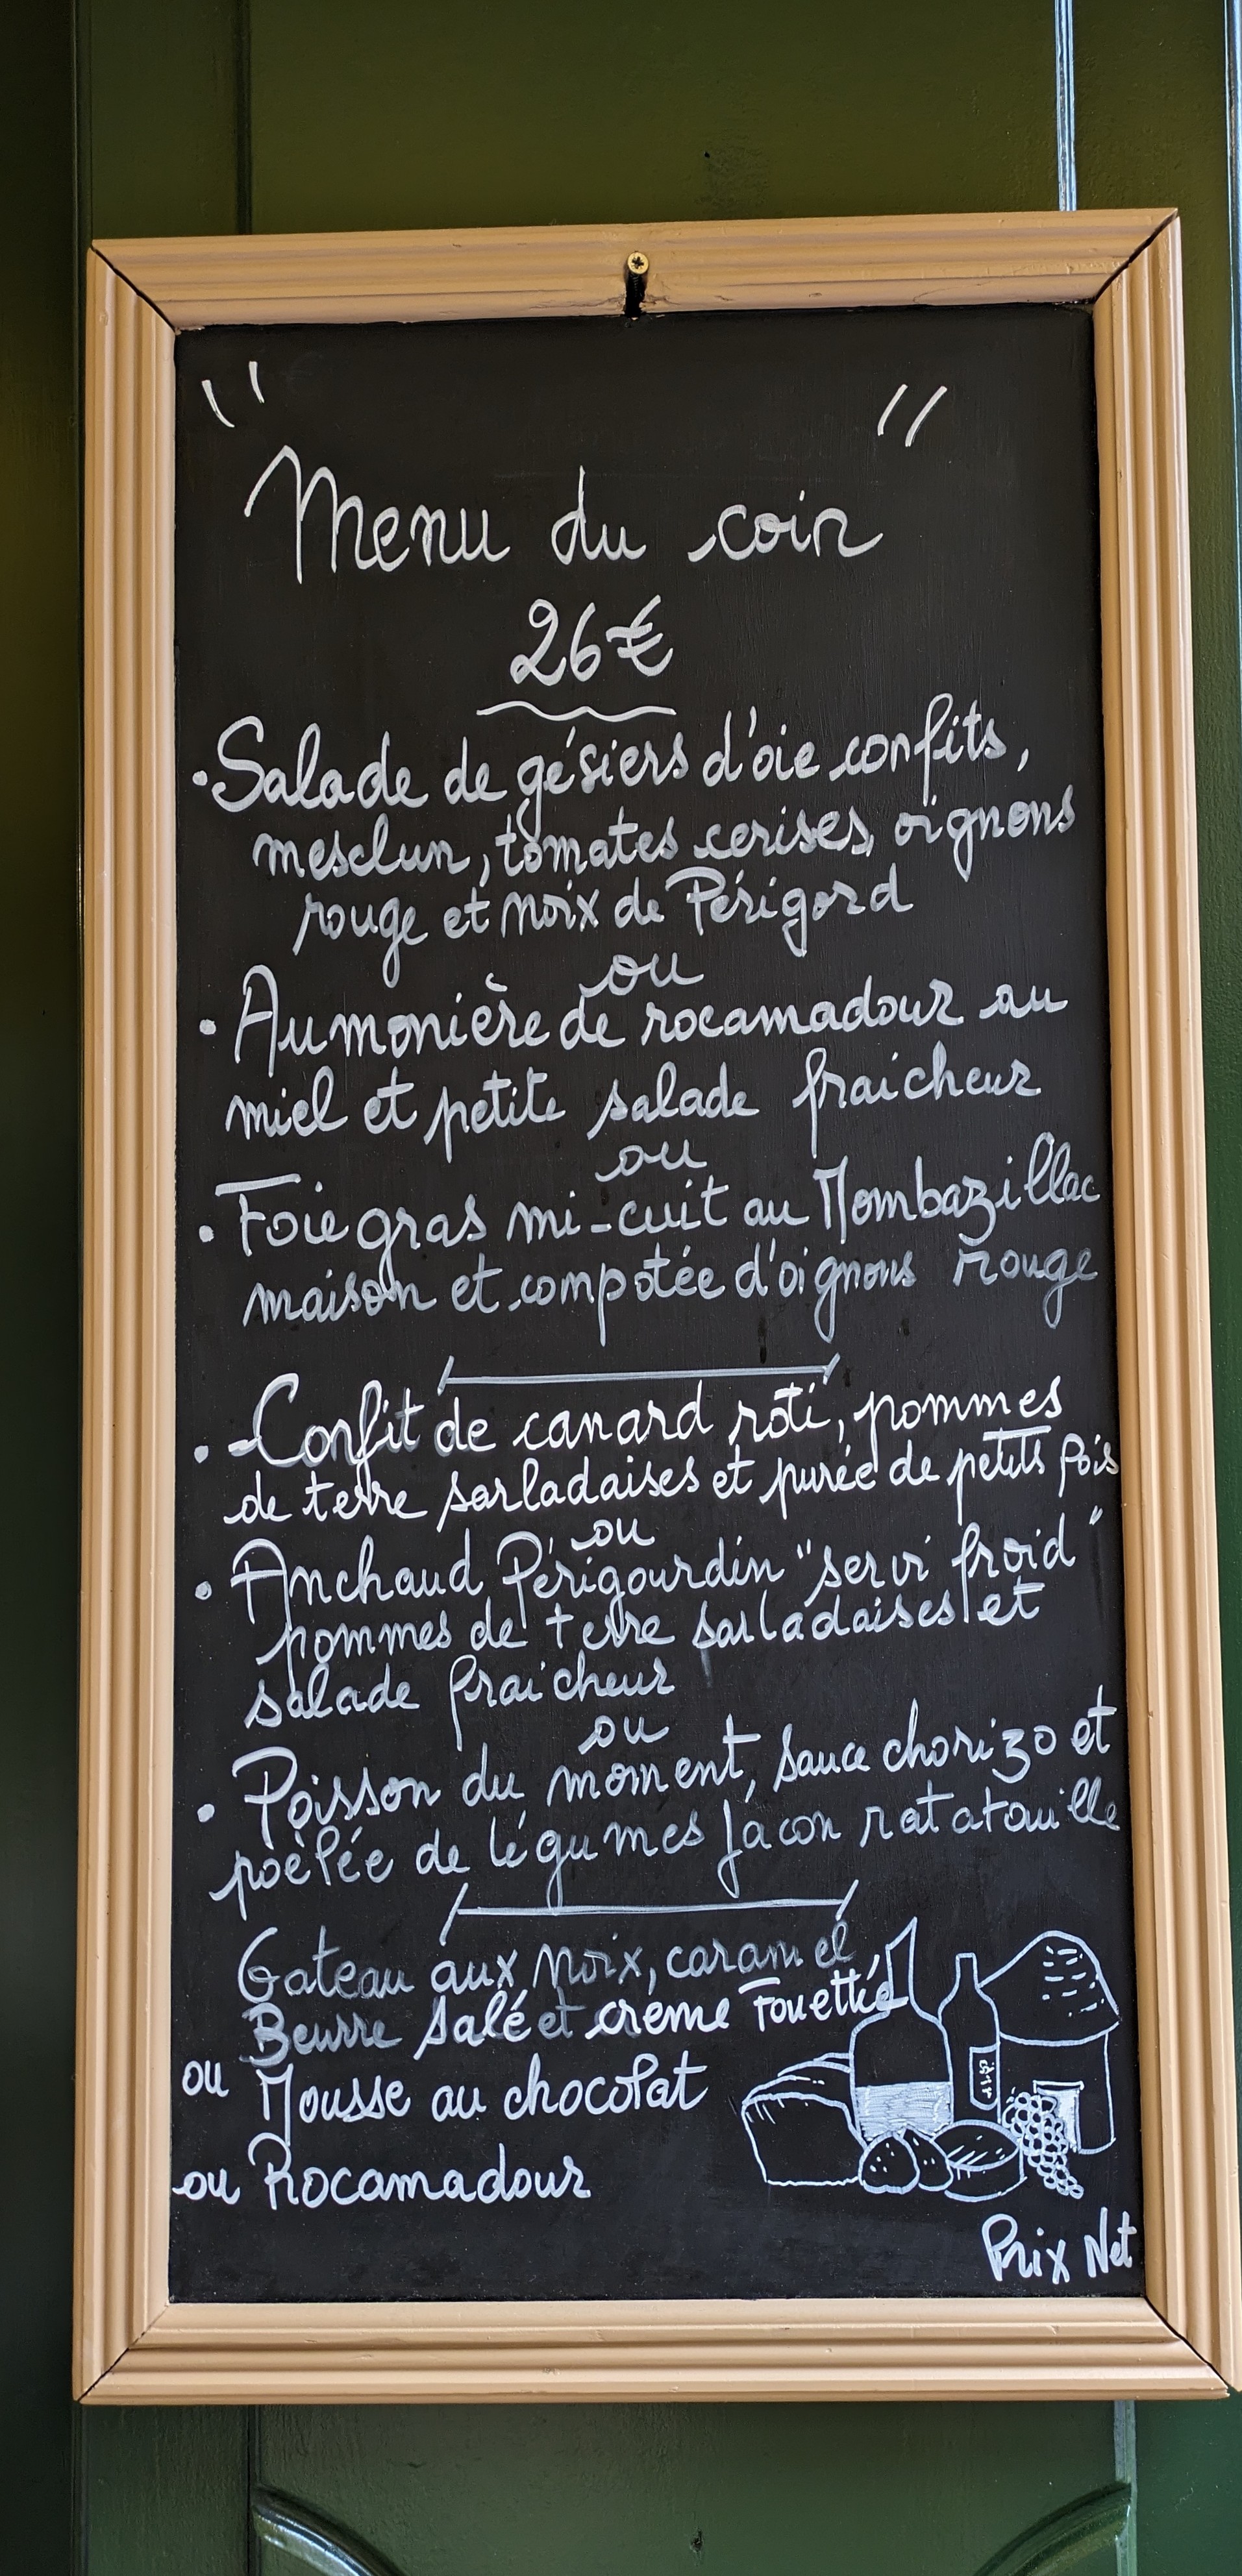 "Menu du coin"
26€
• Salade de gésiers d'oie confits,
mesclun, tomates cerises, oignons
rouge et noix de Périgord
ou
• Aumonière de rocamadour au
miel et petite salade fraicheur
ou
• Foie gras mi-cuit au Mombazillac
maison et compotée d'oignons rouge
• Confit de canard roti, pommes
de terre sarladaises et purée de petits pois
ou
• Anchaud Périgourdin "servi froid"
pommes de terre sarladaises et
salade fraicheur
ou
• Poisson du moment, sauce chorizo et
poèlée de légumes façon ratatouille
Gateau aux noix, caramel
Beurre salé et crème Fouettée
ou Mousse au chocolat
ou Rocamadour
Prix Net